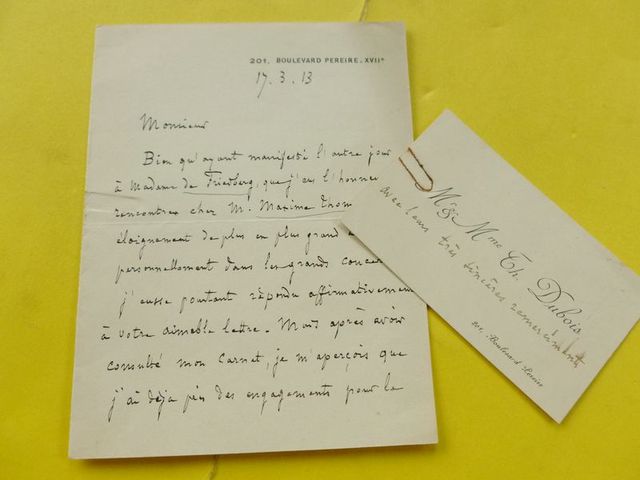 201, BOULEVARD PEREIRE, XVIIe
17.3.13
Monsieur
Bien qu'ayant manifesté l'autre jour
à Madame de Friedberg, que j'eus l'honneur
rencontrer chez Mr. Maxime Thom
éloignement de plus en plus grand
personnellement dans les grands conce
j'eusse pourtant répondu affirmativement
à votre aimable lettre. Mais après avoir
consulté mon carnet, je m'aperçois que
j'ai déjà pris des engagements pour la
Mr & Mme Th. Dubois
avec leurs très sincères remerciements
201, Boulevard Pereire